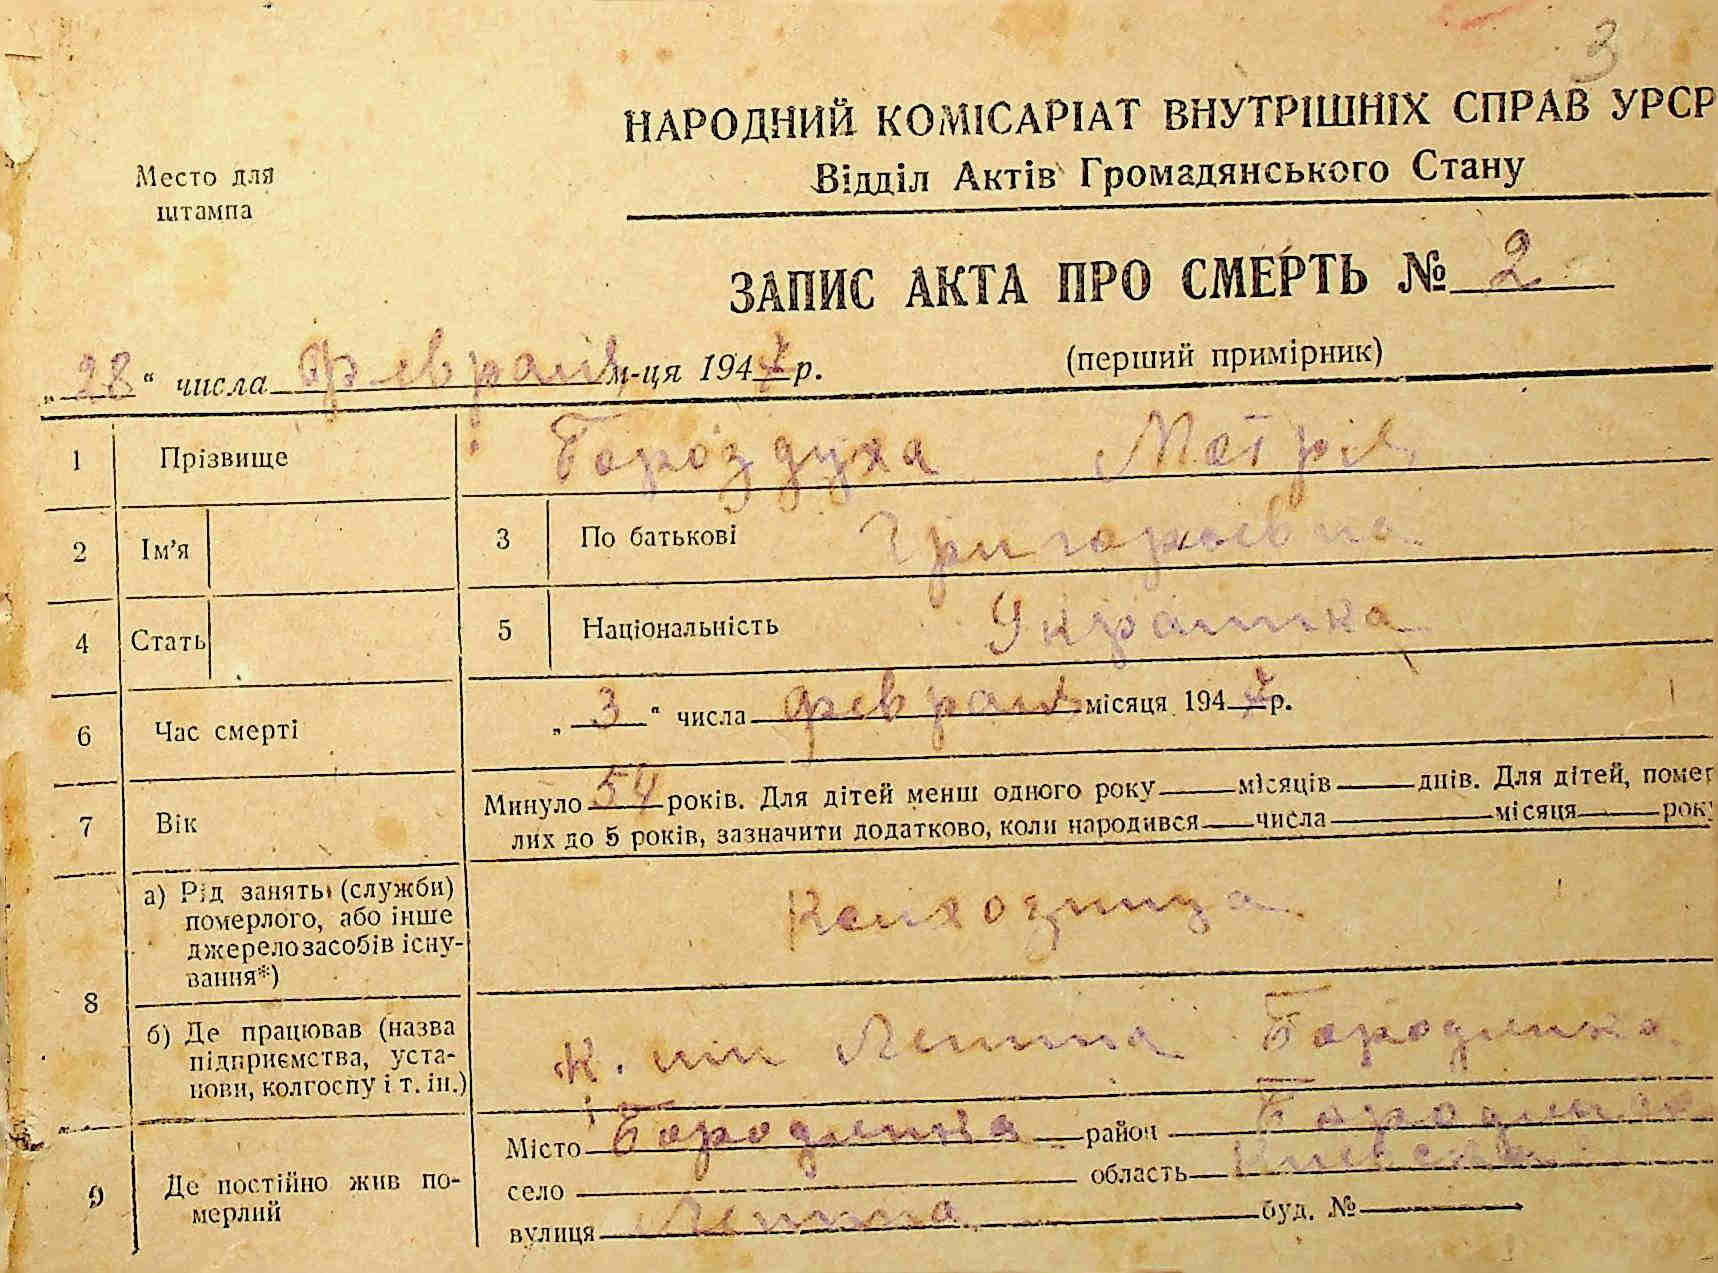 3
НАРОДНИЙ КОМІСАРІАТ ВНУТРІШНІХ СПРАВ УРСР
Відділ Актів Громадянського Стану
Место для
штампа
ЗАПИС АКТА ПРО СМЕРТЬ № 2
(перший примірник)
„28“ числа февраля м-ця 1947 р.
1 Прізвище Бороздуха
2 Ім’я 3 По батькові Григорьевна
4 Стать 5 Національність Украинка
6 Час смерті „3“ числа февраля місяця 1947 р.
7 Вік Минуло 54 років. Для дітей менш одного року місяців днів. Для дітей, помер
лих до 5 років, зазначити додатково, коли народився числа місяця рок
8 а) Рід занять (служби) померлого, або інше джерело засобів існу-
вання*) Колхозница
б) Де працював (назва підприємства, уста-
нови, колгоспу і т. ін.) К. им Ленина Бородянка
9 Де постійно жив по-
мерлий Місто Бородянка район
село область Киевская
вулиця Ленина буд. №